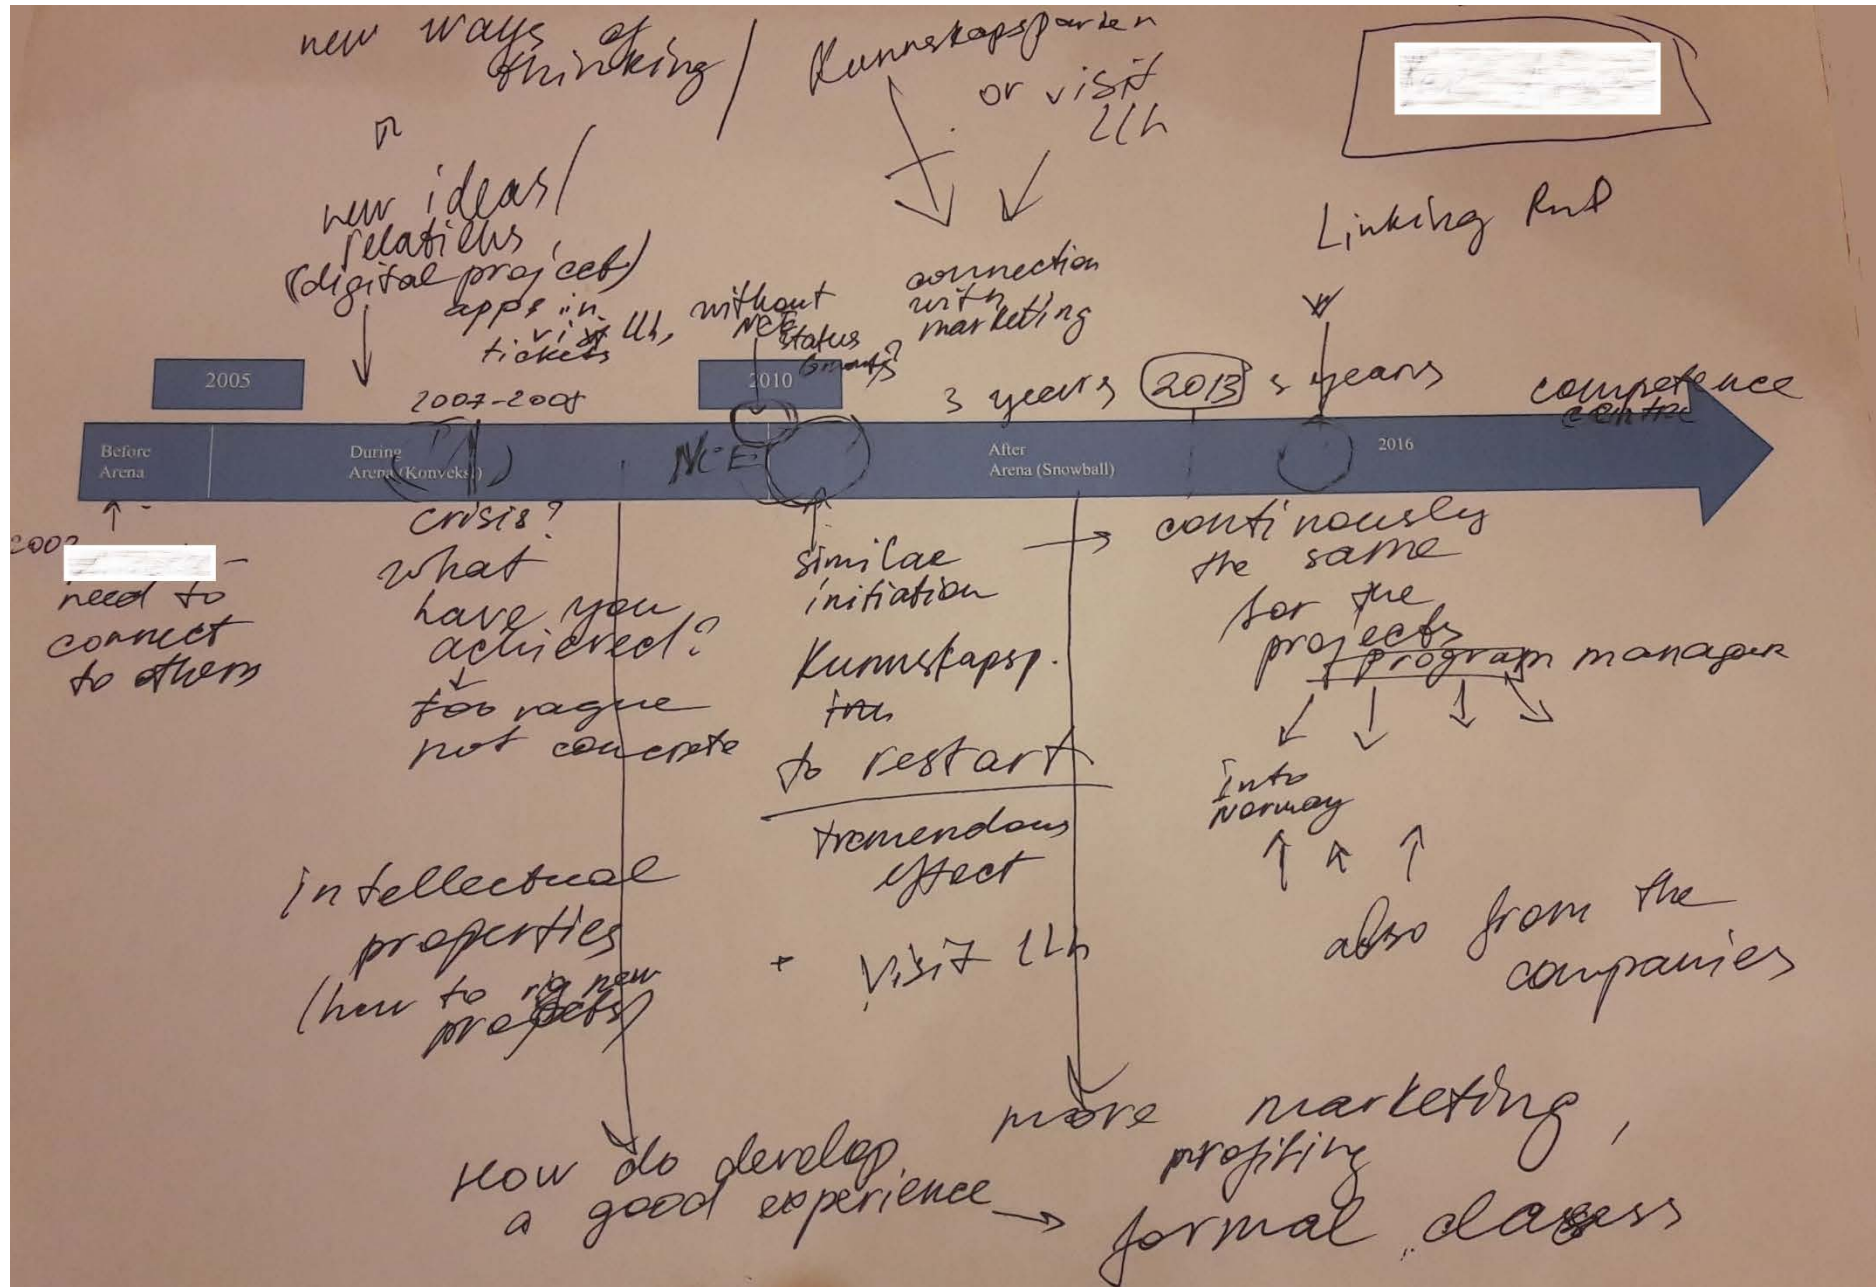 new ways of
thinking /
Kunnskapsparken
or visit
LLh
new ideas /
relations
(digital project)
apps in
visit LLh,
tickets
without
NCE
status
6 months?
connection
with
marketing
Linking RnD
2005
2007-2008
2010
3 years
2013
3 years
competence
centre
Before
Arena
During
Arena (Konveksj)
NCE
After
Arena (Snowball)
2016
need to
connect
to others
crisis?
what
have you
achieved?
too vague
not concrete
similar
initiation
Kunnskapsp.
to restart
tremendous
effect
+ Visit LLh
continously
the same
for the
projects
program manager
into
Norway
also from the
companies
intellectual
properties
(how to rig new
projects)
How do develop
a good experience
more marketing,
profiling
formal classess